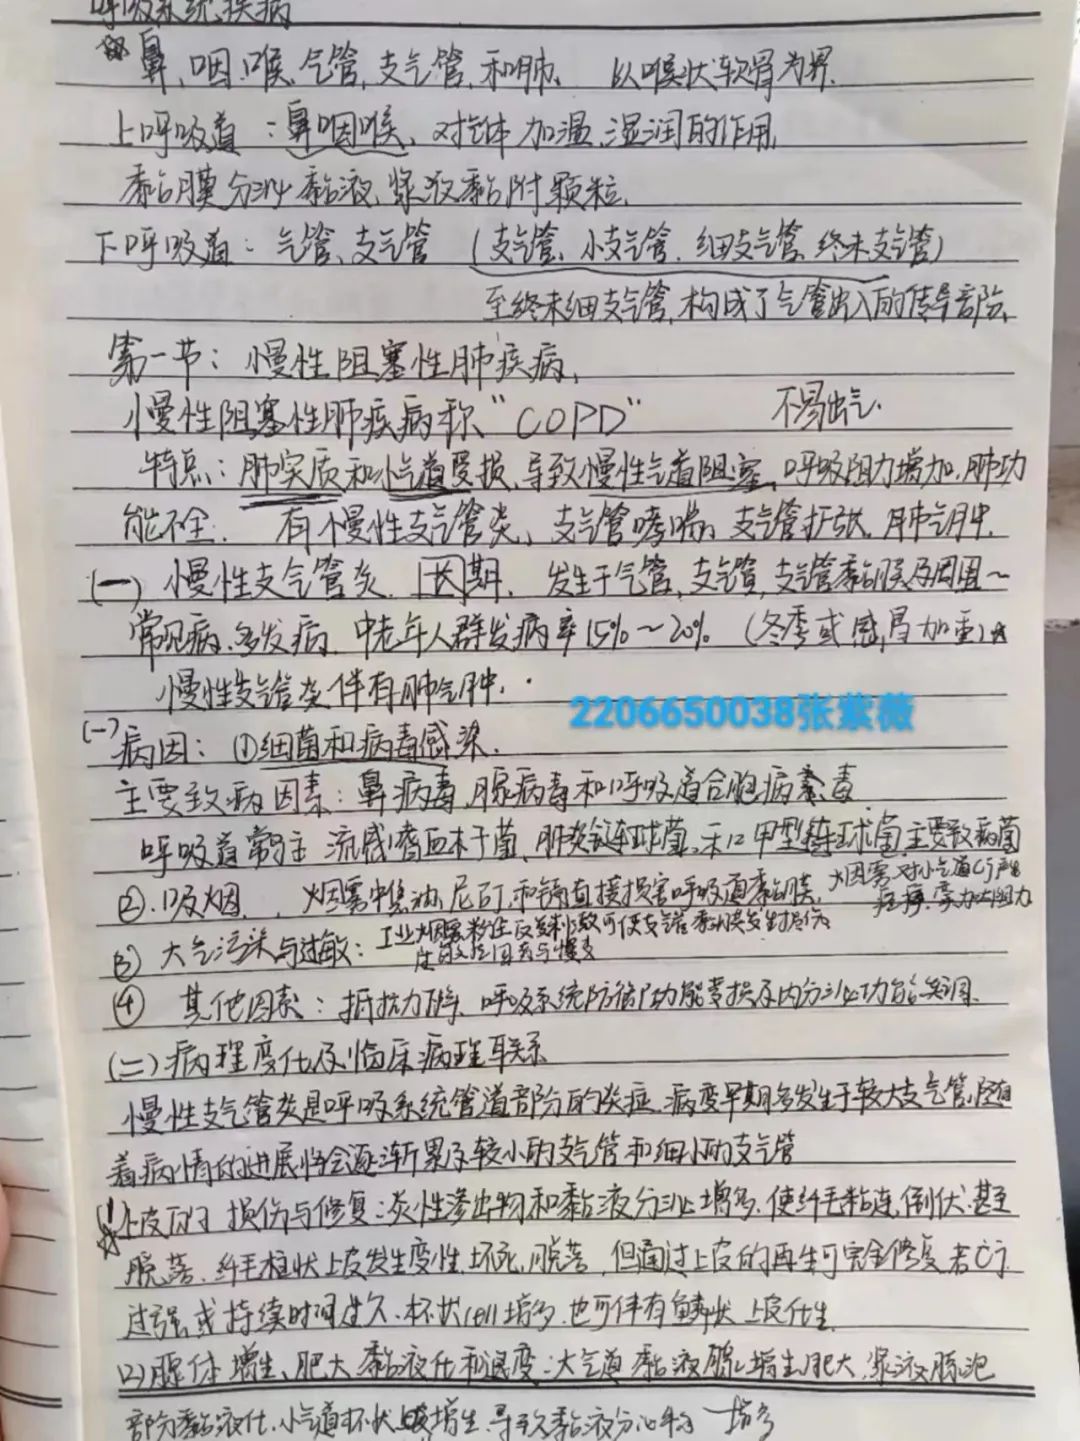 呼吸系统疾病
鼻、咽、喉、气管、支气管、和肺、 以喉状软骨为界.
上呼吸道：鼻咽喉、对气体加温、湿润的作用,
黏膜分泌黏液、浆液黏附颗粒,
下呼吸道：气管、支气管（支气管、小支气管、细支气管、终末支气管）
至终末细支气管，构成了气管出入的传导部份、
第一节：慢性阻塞性肺疾病、
慢性阻塞性肺疾病称“COPD” 不易出气.
特点：肺实质和小气道受损、导致慢性气道阻塞、呼吸阻力增加、肺功
能不全. 有慢性支气管炎、支气管哮喘、支气管扩张、肺气肿.
(一) 慢性支气管炎 长期、发生于气管、支气管,支气管黏膜及周围～
常见病、多发病、中老年人群发病率15%～20% (冬季或感冒加重)☆
慢性支气管炎伴有肺气肿..
2206650038张紫薇
(一)病因：①细菌和病毒感染.
主要致病因素：鼻病毒、腺病毒和呼吸道合胞病毒
呼吸道常驻 流感嗜血杆菌、肺炎链球菌、和 甲型链球菌 主要致病菌
②.吸烟. 烟雾中焦油、尼古丁和镉直接损害呼吸道黏膜、烟雾对小气道
痉挛,
③ 大气污染与过敏：工业烟雾粉尘 刺激 可使支气管黏膜发生损伤
过敏性因素与慢支
④ 其他因素：抵抗力下降、呼吸系统防御功能受损及内分泌功能失调.
(二)病理变化及临床病理联系
慢性支气管炎是呼吸系统管道部份的炎症 病变早期多发生于较大支气管,随
着病情的进展将会逐渐累及较小的支气管和细小的支气管
上皮的 损伤与修复：炎性渗出物和黏液分泌增多、使纤毛粘连、倒伏、甚至
脱落、纤毛柱状上皮发生变性、坏死、脱落、但通过上皮的再生可完全修复 若
过强或持续时间过久、杯状cell增多、也可伴有鳞状上皮化生
(2)腺体增生、肥大黏液化和退变：大气道黏液腺增生肥大、浆液腺泡
部分黏液化、小气道杯状 增生、导致黏液分泌 增多